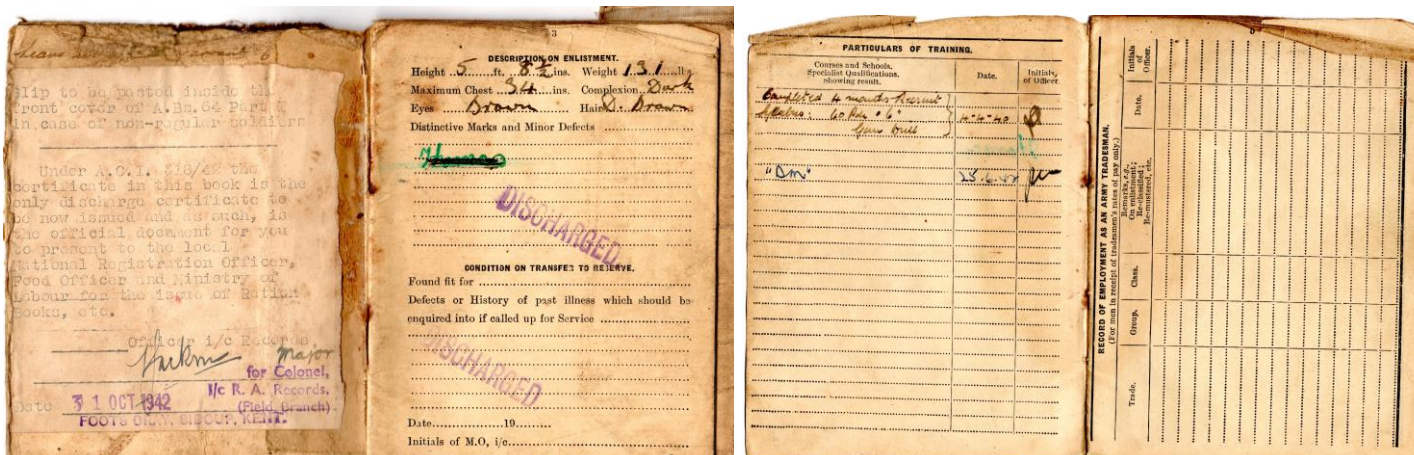 Slip to be pasted inside the
front cover of A.Bs.64 Part I
in case of non-regular soldiers
Under A.C.I. 518/42 the
certificate in this book is the
only discharge certificate to
be now issued and as such, is
the official document for you
to present to the local
National Registration Officer,
Food Officer and Ministry of
Labour for the issue of Ration
Books, etc.
Officer i/c Records
Major
for Colonel,
I/c R. A. Records.
(Field Branch)
Date 31 OCT 1942
FOOTS CRAY, SIDCUP, KENT.
3
DESCRIPTION ON ENLISTMENT.
Height 5 ft. 8½ ins. Weight 131 lbs.
Maximum Chest 34 ins. Complexion Dark
Eyes Brown Hair D. Brown
Distinctive Marks and Minor Defects
DISCHARGED
CONDITION ON TRANSFER TO RESERVE.
Found fit for
Defects or History of past illness which should be
enquired into if called up for Service
DISCHARGED
Date 19
Initials of M.O. i/c
PARTICULARS OF TRAINING.
Courses and Schools.
Specialist Qualifications,
showing result.
Date.
Initials
of Officer.
Completed 4 months Recruit
Syllabus: 60 Pdr "6"
Gun Drill
4-4-40
"Dm"
25.6.40
RECORD OF EMPLOYMENT AS AN ARMY TRADESMAN.
(For men in receipt of tradesmen's rates of pay only.)
Trade.
Group.
Class.
Remarks, e.g.,
On enlistment;
Re-classified;
Re-mustered, etc.
Date.
Initials
of
Officer.